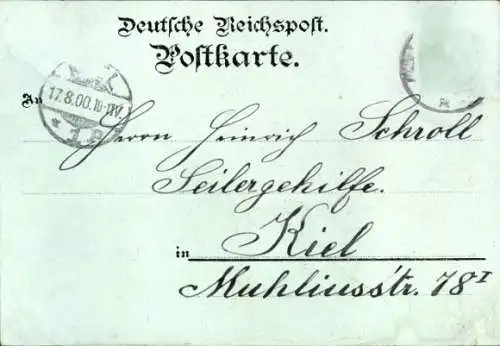 Deutsche Reichspost.
Postkarte.
17.8.00.10-11V.
* 1 B
An
Herrn Heinrich Schroll
Seilergehilfe.
in Kiel
Muhliusstr. 78 I